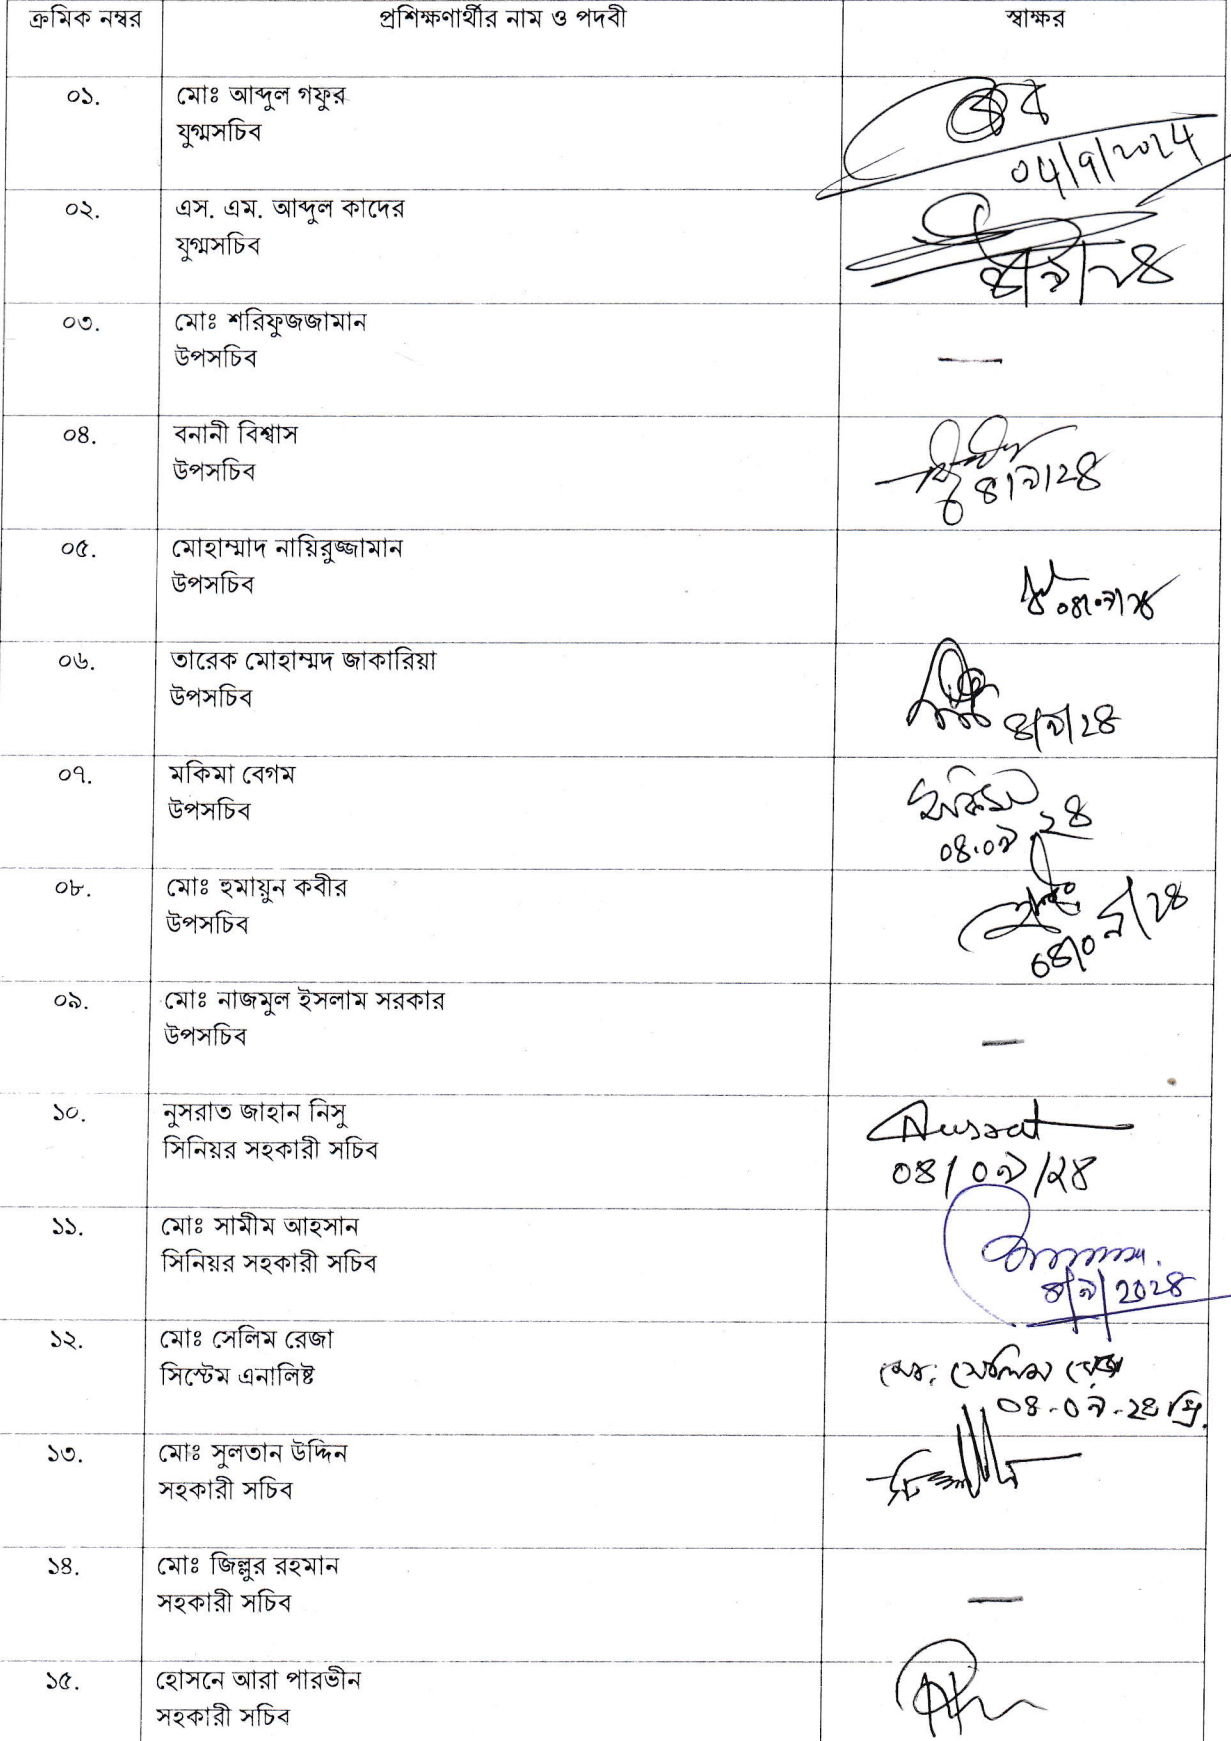 ক্রমিক নম্বর প্রশিক্ষণার্থীর নাম ও পদবী স্বাক্ষর
০১. মোঃ আব্দুল গফুর
যুগ্মসচিব
04/9/2024
০২. এস. এম. আব্দুল কাদের
যুগ্মসচিব
৪/৯/২৪
০৩. মোঃ শরিফুজজামান
উপসচিব
—
০৪. বনানী বিশ্বাস
উপসচিব
৪/৯/২৪
০৫. মোহাম্মাদ নায়িরুজ্জামান
উপসচিব
০৪/০৯/২৪
০৬. তারেক মোহাম্মদ জাকারিয়া
উপসচিব
৪/৯/২৪
০৭. মকিমা বেগম
উপসচিব
মকিমা
০৪.০৯.২৪
০৮. মোঃ হুমায়ুন কবীর
উপসচিব
০৪/০৯/২৪
০৯. মোঃ নাজমুল ইসলাম সরকার
উপসচিব
—
১০. নুসরাত জাহান নিসু
সিনিয়র সহকারী সচিব
Nusrat
০৪/০৯/২৪
১১. মোঃ সামীম আহসান
সিনিয়র সহকারী সচিব
৪/৯/২০২৪
১২. মোঃ সেলিম রেজা
সিস্টেম এনালিষ্ট
মো: সেলিম রেজা
০৪-০৯-২৪ খ্রি.
১৩. মোঃ সুলতান উদ্দিন
সহকারী সচিব
১৪. মোঃ জিল্লুর রহমান
সহকারী সচিব
—
১৫. হোসনে আরা পারভীন
সহকারী সচিব